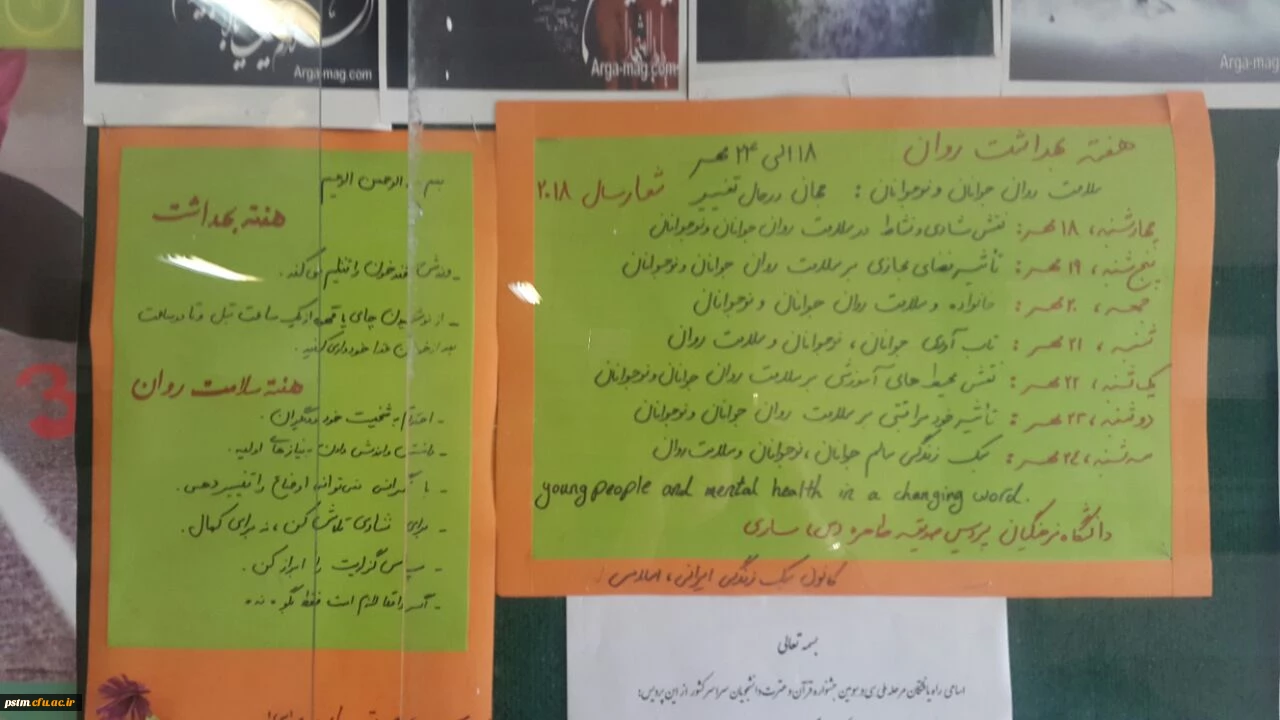 Arga-mag.com
Arga-mag.com
Arga-mag
هفته بهداشت روان ۱۸ الی ۲۴ مهر
سلامت روان جوانان و نوجوانان : جهانی در حال تغییر شعار سال ۲۰۱۸
چهارشنبه، ۱۸ مهر: نقش شادی و نشاط در سلامت روان جوانان و نوجوانان
پنج شنبه، ۱۹ مهر: تأثیر فضای مجازی بر سلامت روان جوانان و نوجوانان
جمعه، ۲۰ مهر: خانواده و سلامت روان جوانان و نوجوانان
شنبه، ۲۱ مهر: تاب آوری جوانان، نوجوانان و سلامت روان
یک شنبه، ۲۲ مهر: نقش محیط های آموزشی بر سلامت روان جوانان و نوجوانان
دوشنبه، ۲۳ مهر: تأثیر خود مراقبتی بر سلامت روان جوانان و نوجوانان
سه شنبه، ۲۴ مهر: سبک زندگی سالم جوانان، نوجوانان و سلامت روان
young people and mental health in a changing word.
دانشگاه فرهنگیان پردیس صدیقه طاهره (س) ساری
کانون سبک زندگی ایرانی، اسلامی
الرحمن الرحیم
هفته بهداشت
- ورزش قند خون را تنظیم می کند.
- از نوشیدن چای یا قهوه از یک ساعت قبل و تا دو ساعت
بعد از خوردن غذا خودداری کنید.
هفته سلامت روان
- احترام به شخصیت خود و دیگران.
- دانستن و ارزش دادن به نیازهای اولیه.
- با نگرانی نمی توانی اوضاع را تغییر دهی.
- برای شادی تلاش کن، نه برای کمال.
- سپاس گزاریت را ابراز کن.
- اگر واقعا لازم است فقط بگو نه
بسمه تعالی
اسامی راه یافتگان مرحله ملی سی و سومین جشنواره قرآن و عترت دانشجویان سراسر کشور از این پردیس:
3
pstm.cfu.ac.ir